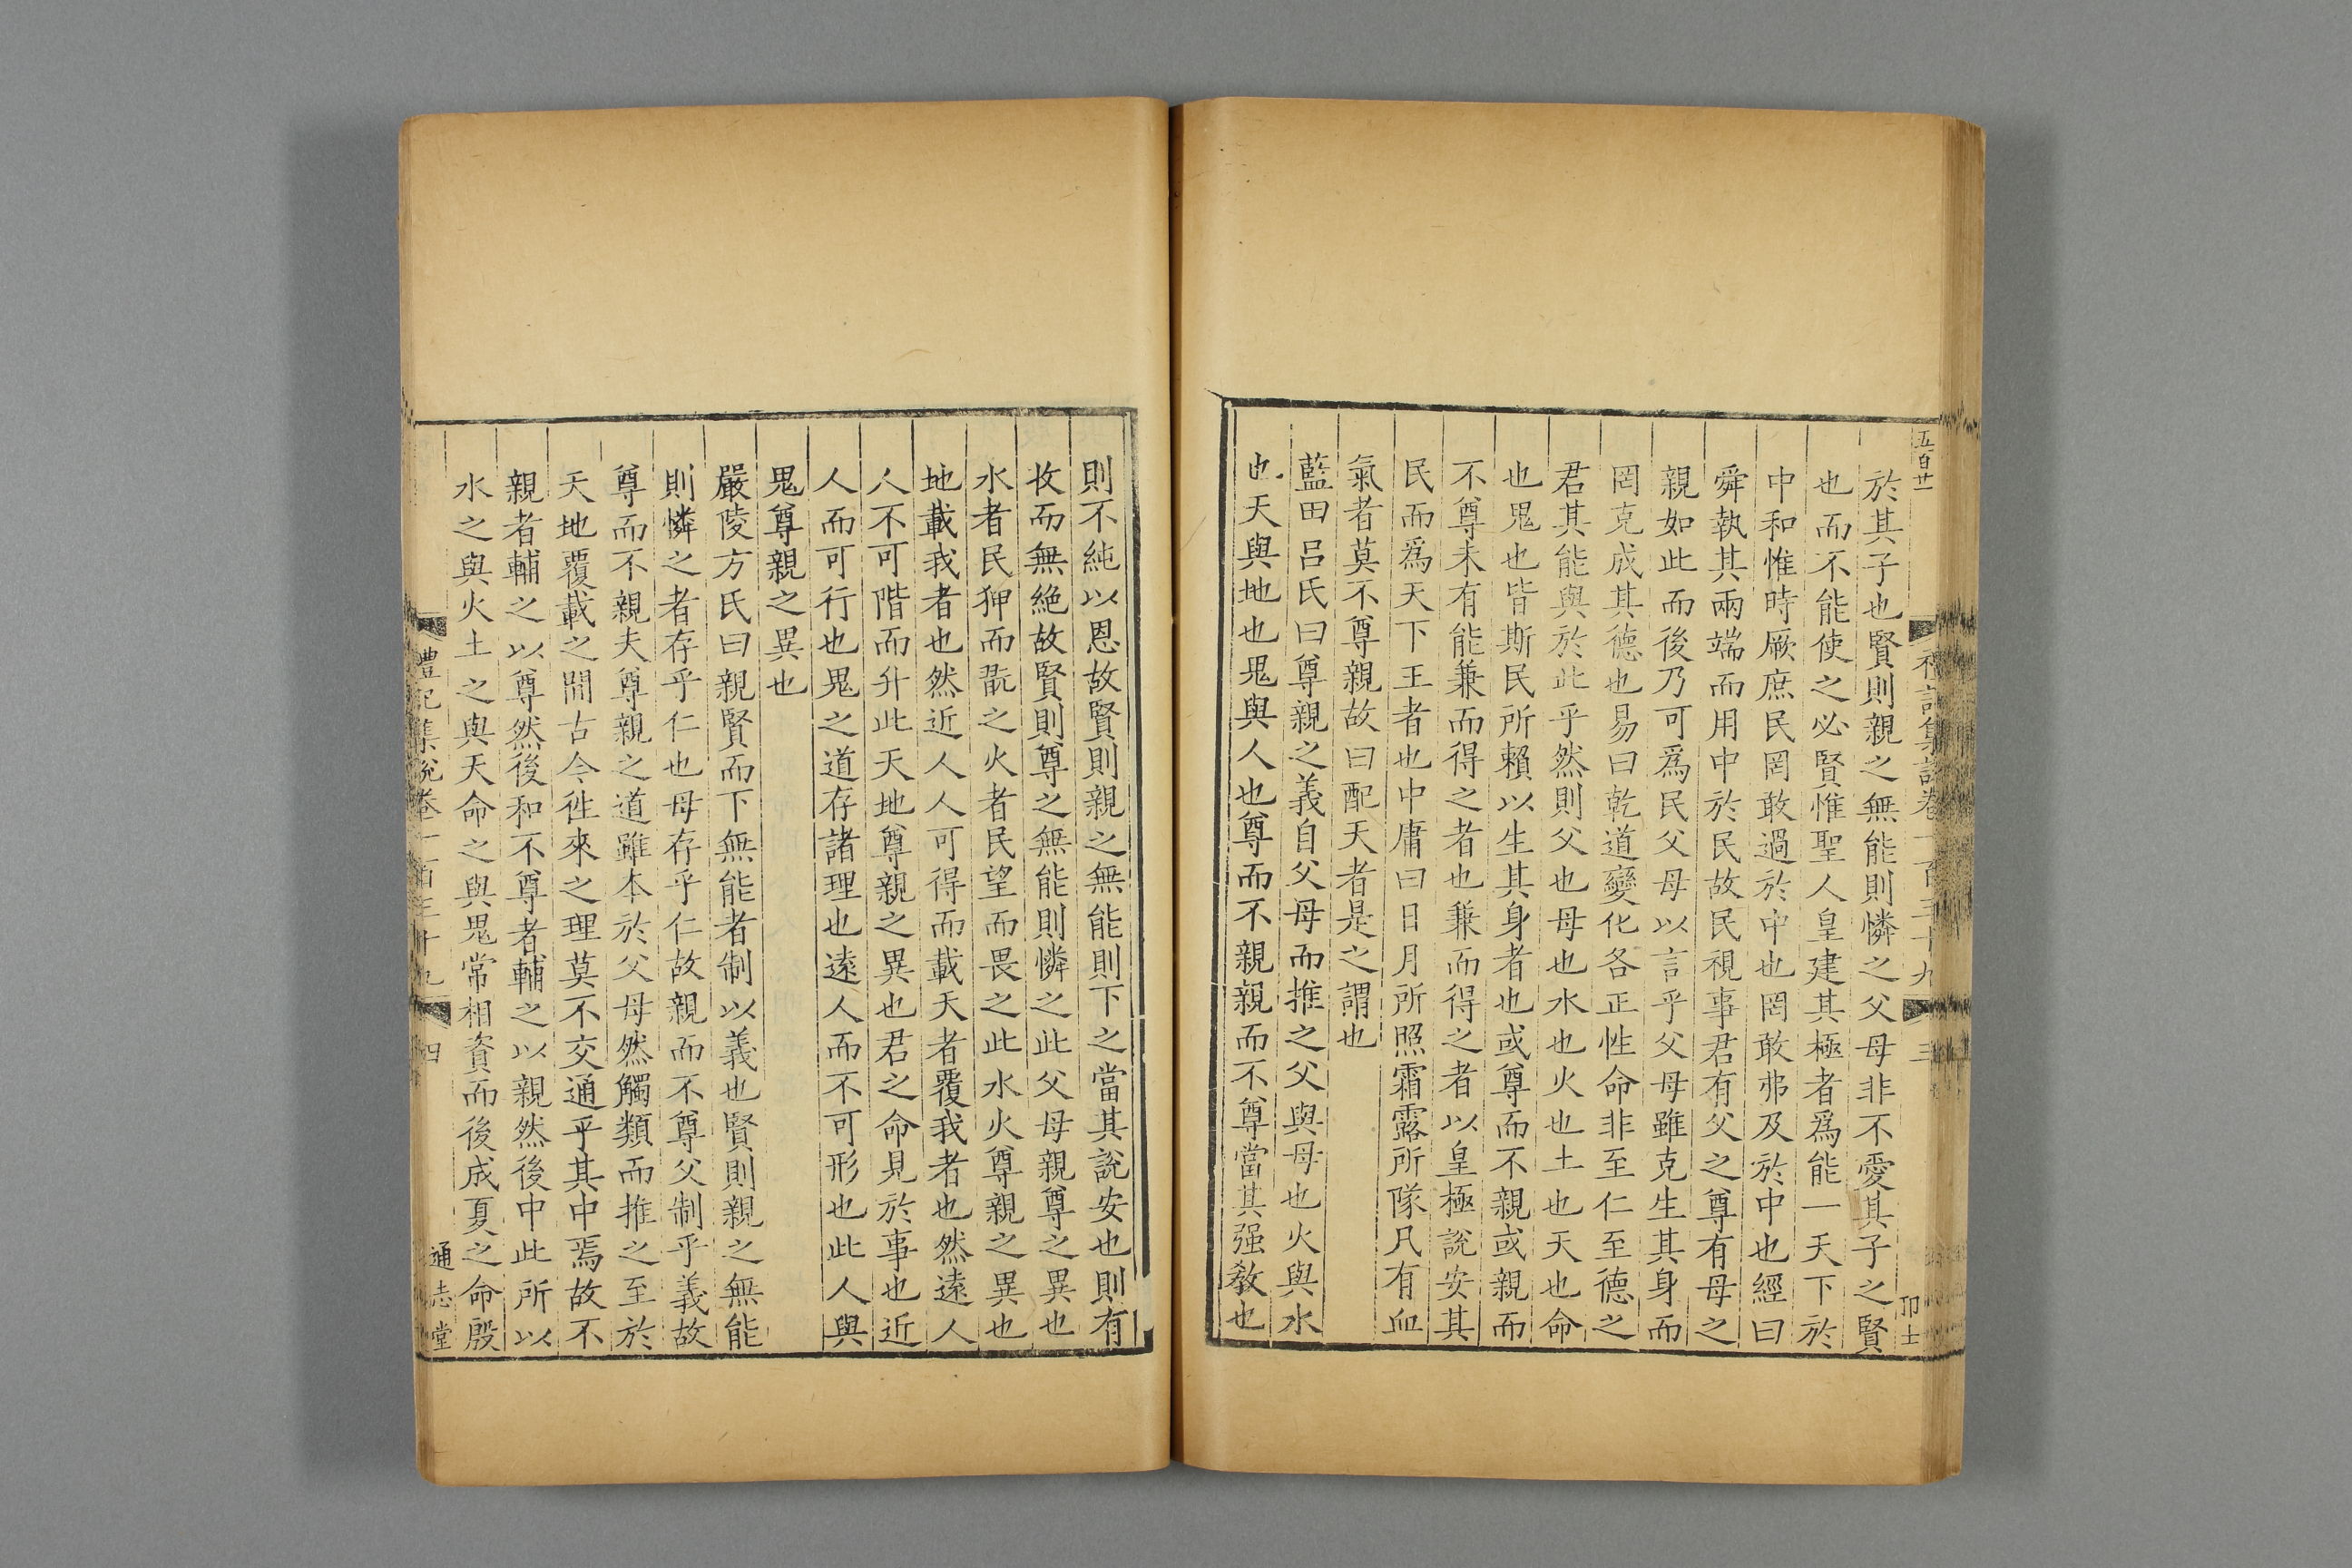 五百廿一
禮記集說卷一百三十九
三
卬士
於其子也賢則親之無能則憐之父母非不愛其子之賢
也而不能使之必賢惟聖人皇建其極者爲能一天下於
中和惟時厥庶民罔敢過於中也罔敢弗及於中也經曰
舜執其兩端而用中於民故民視事君有父之尊有母之
親如此而後乃可爲民父母以言乎父母雖克生其身而
罔克成其德也易曰乾道變化各正性命非至仁至德之
君其能與於此乎然則父也母也水也火也土也天也命
也鬼也皆斯民所賴以生其身者也或尊而不親或親而
不尊未有能兼而得之者也兼而得之者以皇極說安其
民而爲天下王者也中庸曰日月所照霜露所隊凡有血
氣者莫不尊親故曰配天者是之謂也
藍田呂氏曰尊親之義自父母而推之父與母也火與水
也天與地也鬼與人也尊而不親親而不尊當其强敎也
則不純以恩故賢則親之無能則下之當其說安也則有
收而無絶故賢則尊之無能則憐之此父母親尊之異也
水者民狎而翫之火者民望而畏之此水火尊親之異也
地載我者也然近人人可得而載天者覆我者也然遠人
人不可階而升此天地尊親之異也君之命見於事也近
人而可行也鬼之道存諸理也遠人而不可形也此人與
鬼尊親之異也
嚴陵方氏曰親賢而下無能者制以義也賢則親之無能
則憐之者存乎仁也母存乎仁故親而不尊父制乎義故
尊而不親夫尊親之道雖本於父母然觸類而推之至於
天地覆載之間古今徃來之理莫不交通乎其中焉故不
親者輔之以尊然後和不尊者輔之以親然後中此所以
水之與火土之與天命之與鬼常相資而後成夏之命殷
禮記集說卷一百三十九
四
通志堂